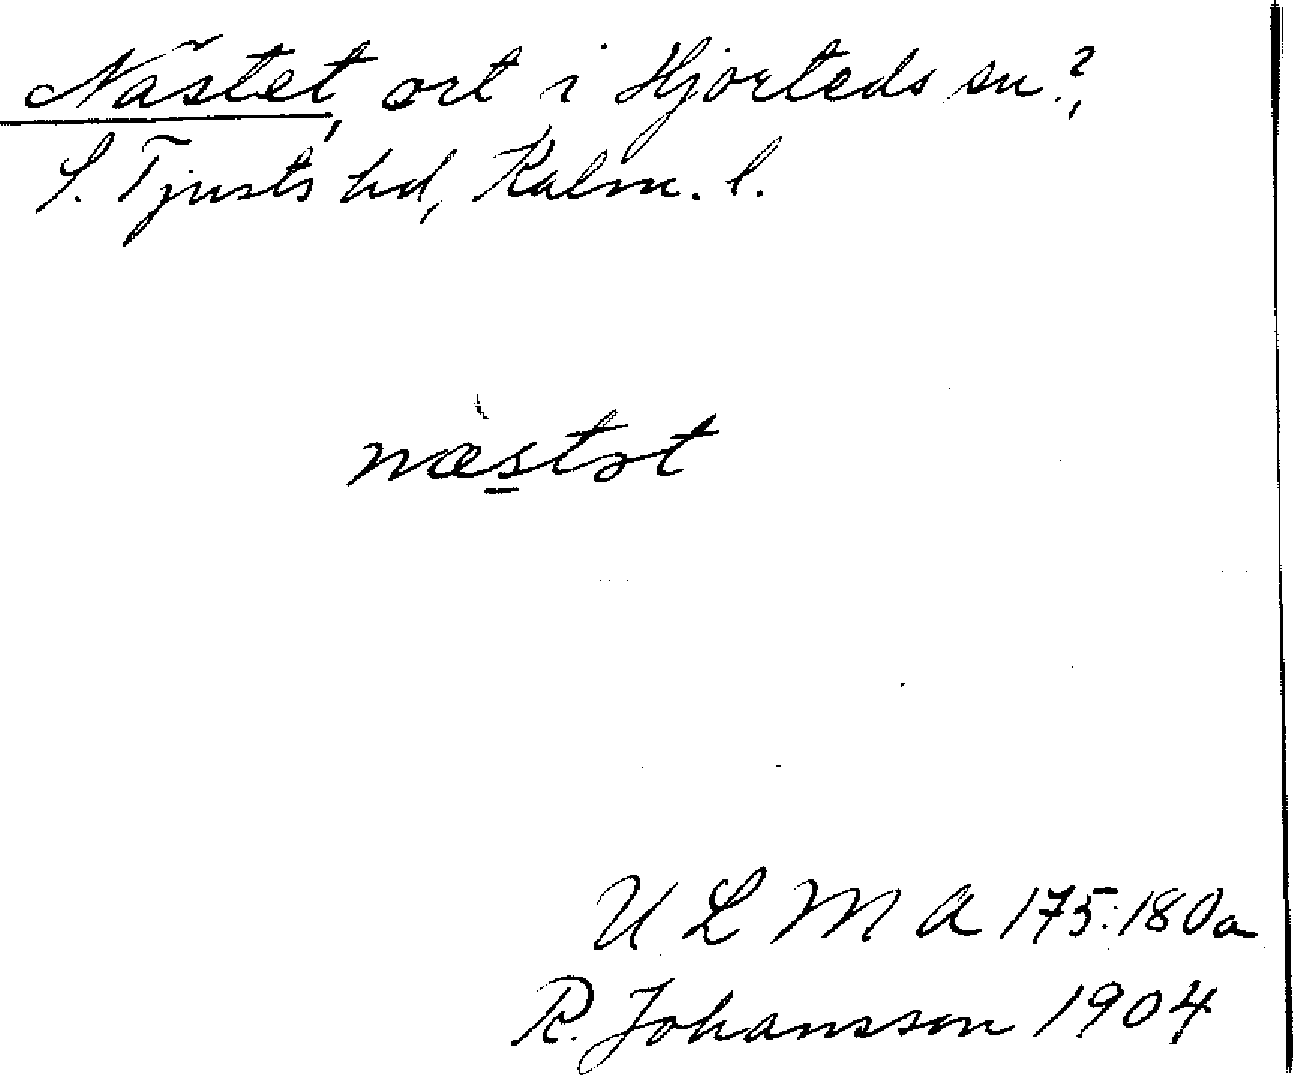 Nästet, ort i Hjorteds sn?,
S. Tjusts hd, Kalm. l.
næ̀s̲tət
ULMA 175:180a
R. Johansson 1904